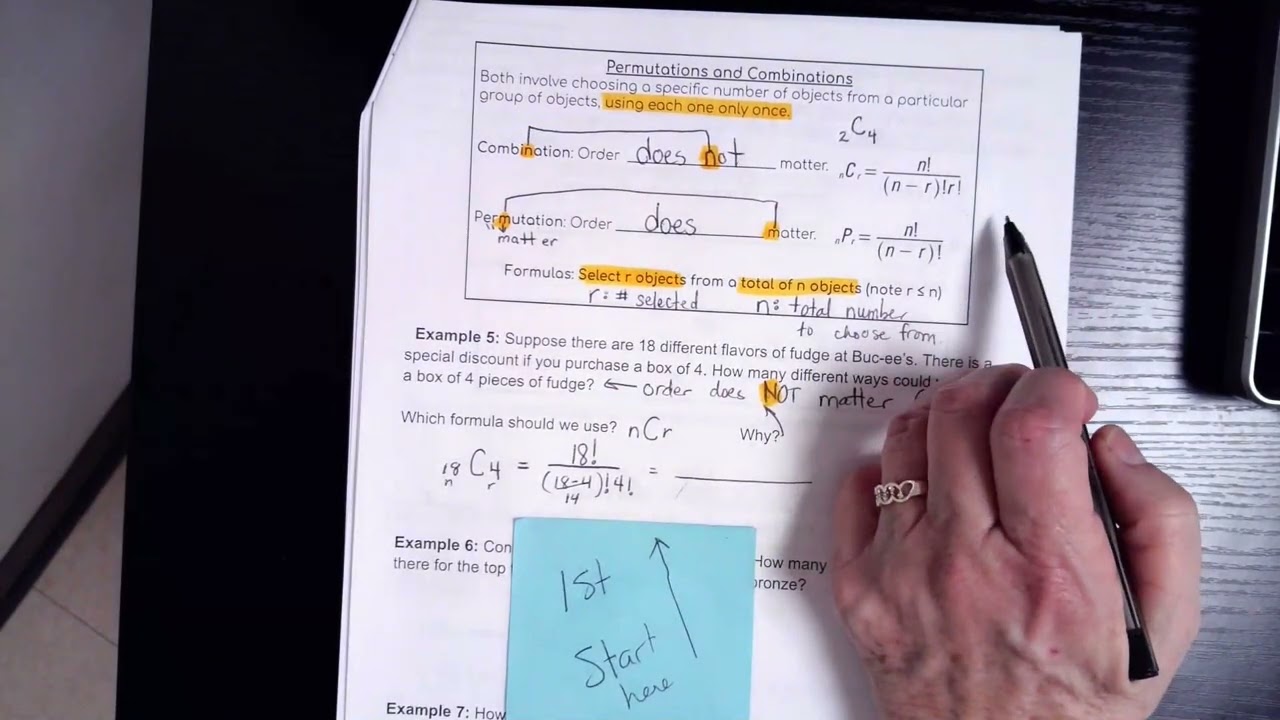 Permutations and Combinations
Both involve choosing a specific number of objects from a particular
group of objects, using each one only once.
₂C₄
Combination: Order does not matter. ₙCᵣ = n! / (n − r)!r!
Permutation: Order does matter. ₙPᵣ = n! / (n − r)!
matter
Formulas: Select r objects from a total of n objects (note r ≤ n)
r: # selected n: total number
to choose from
Example 5: Suppose there are 18 different flavors of fudge at Buc-ee's. There is a
special discount if you purchase a box of 4. How many different ways could
a box of 4 pieces of fudge? ← order does NOT matter (
Which formula should we use? nCr Why?
₁₈C₄ = 18! / (18-4)!4! = ________
n r 14
Example 6: Con How many
there for the top bronze?
1st
Start
here
Example 7: How